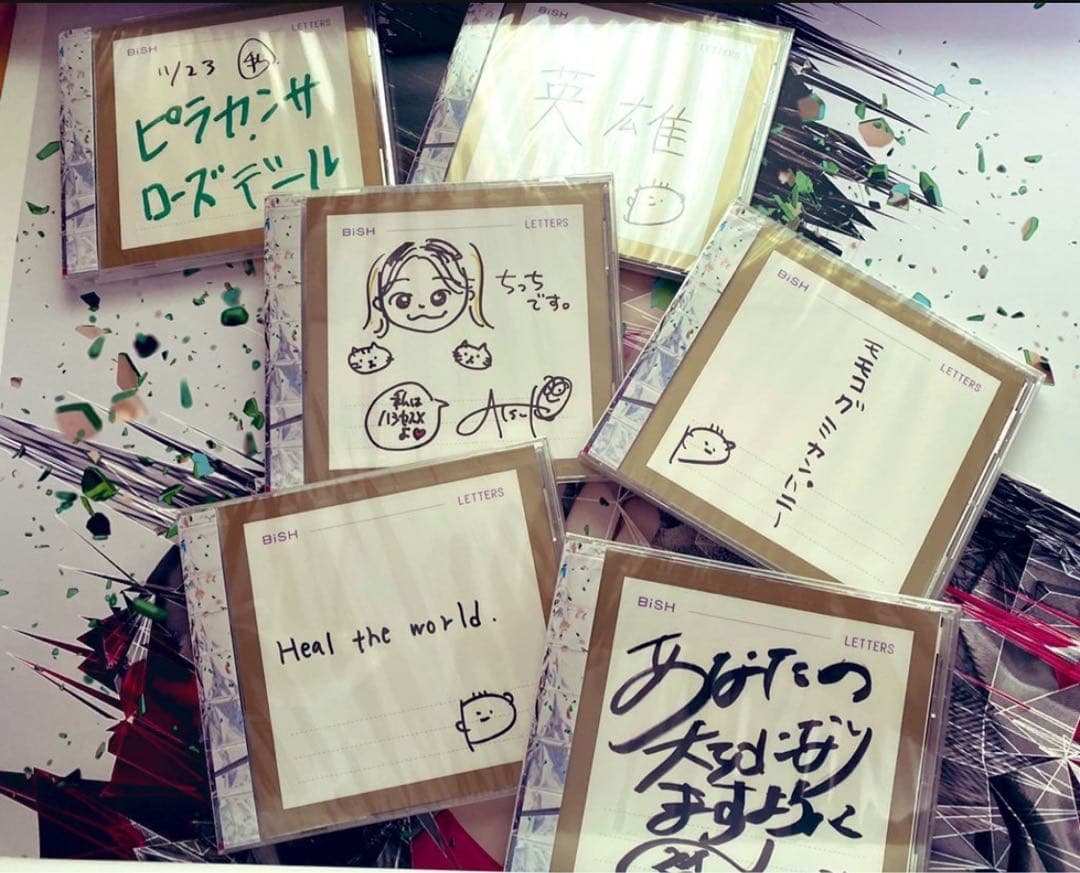 BiSH
LETTERS
11/23
ピラカンサ
ローズデール
BiSH
LETTERS
英雄
BiSH
LETTERS
ちっち
です。
私は
よ
BiSH
LETTERS
BiSH
LETTERS
Heal the world.
BiSH
LETTERS
あなたの
ますように